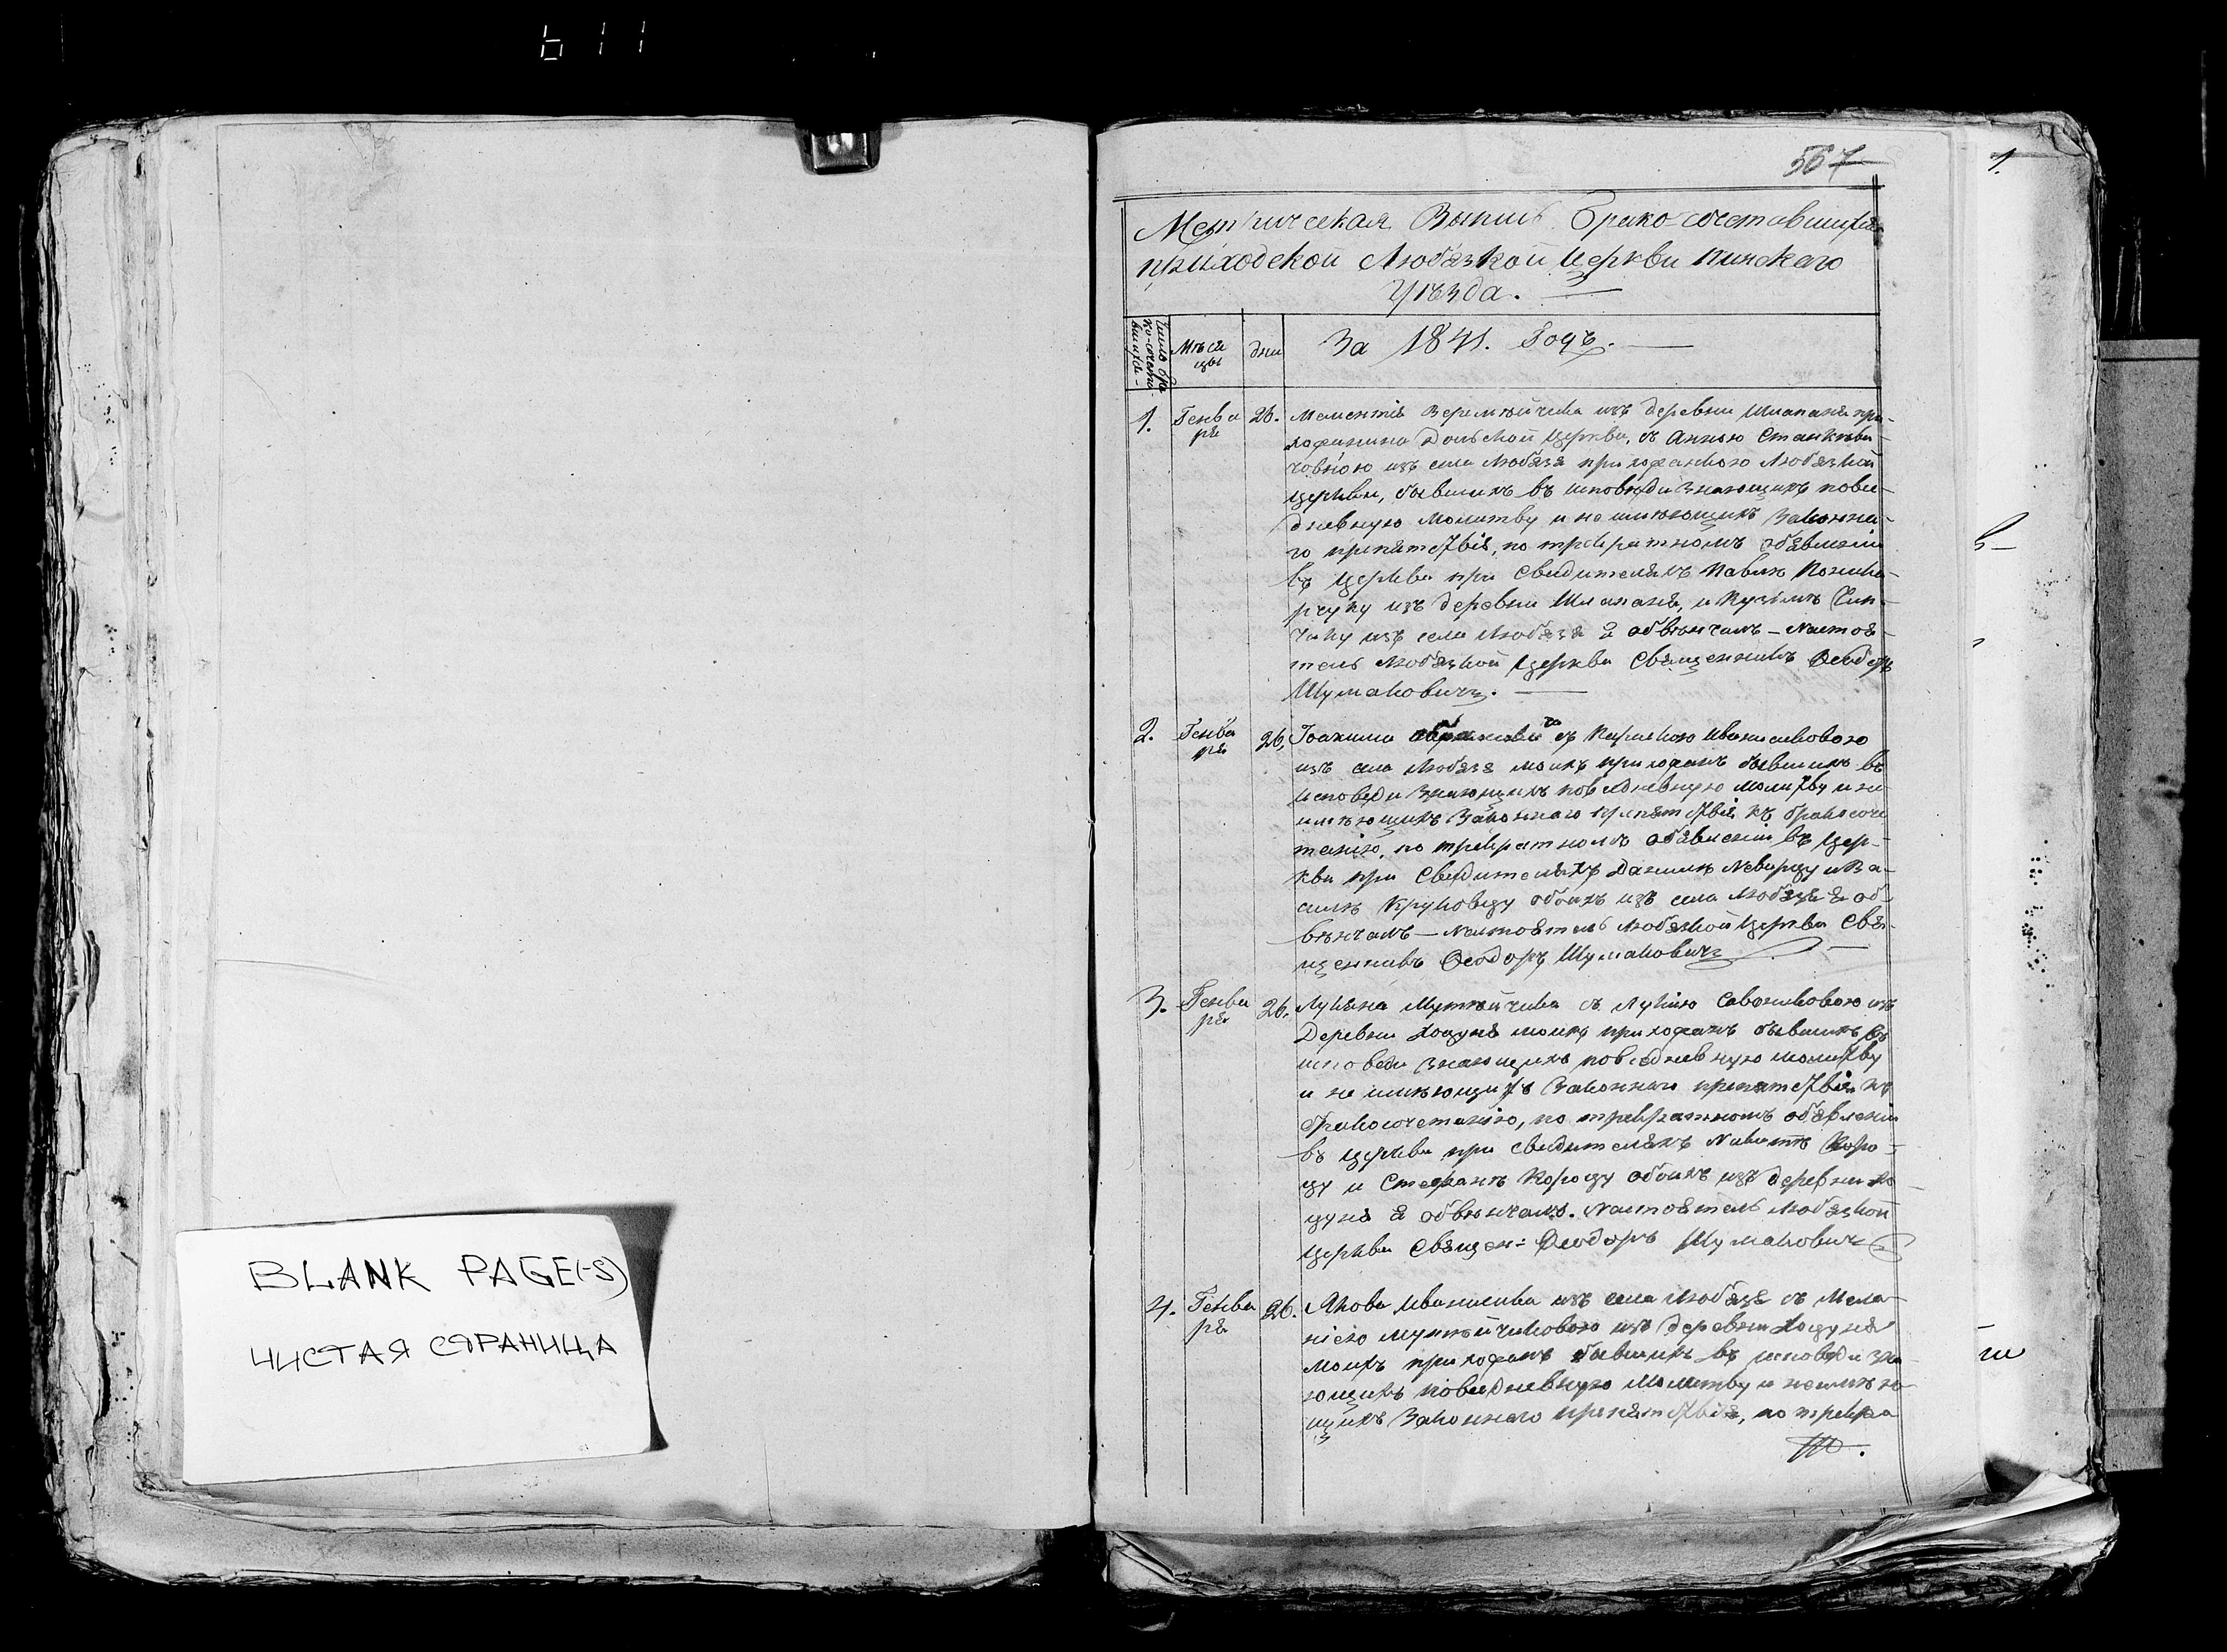 611
567
1.
Метрическая Выпись Брако-сочетавшихся
приходской Любязкой Церкви Пинского
Уѣзда.
Число бра
ко-сочета
вшихся
Мѣся
цы
дни
За 1841. Годъ.
1. Генва
ря 26. изъ деревни Шлапаня при-
хожанина Дольской Церкви, съ Анною Станкеви-
човною изъ села Любязя прихожанкою Любязкой
Церкви, бывшихъ въ исповѣди знающихъ повсе-
дневную Молитву и не имѣющихъ Законна-
го препятствія, по трекратномъ объявленіи
въ Церкви при Свидителяхъ Павлѣ
изъ деревни Шлапаня, и Кузьмѣ
изъ села Любязя я обвѣнчалъ – Настоя-
тель Любязкой Церкви Священникъ Ѳеодоръ
Шумаковичъ.
2. Генва
ря 26. Іоакима съ Параскою Иванисиковою
изъ села Любязя моихъ прихожанъ бывшихъ въ
Исповѣди Знающихъ повседневную молитву и не
имѣющихъ Законнаго препятствія къ бракосоче
танію, по трекратномъ объявленіи въ Цер-
кви при Свидителяхъ Данилѣ и Ва-
силѣ Круковцу обоихъ изъ села Любязя я об-
вѣнчалъ – Настоятель Любязкой Церкви Свя-
щенникъ Ѳеодоръ Шумаковичъ
3. Генва
ря 26. Лукяна Мутвѣйчика съ Лукіею изъ
Деревни Хоцуня моихъ прихожанъ бывшихъ въ
исповѣди знающихъ повседневную молитву
и не имѣющихъ Законнаго препятствія къ
бракосочетанію, по трекратномъ объявленіи
въ Церкви при свидителяхъ Никитѣ Коро-
цу и Стефанѣ Короцу обоихъ изъ деревни Хо-
цуня я обвѣнчалъ. Настоятель Любязкой
Церкви Священ: Ѳеодоръ Шумаковичъ
4. Генва
ря 26. Якова Иванисика изъ села Любязя съ Мела-
ніею Мутвѣйчиковою изъ деревни Хоцуня
Моихъ прихожанъ бывшихъ въ исповѣди зна-
ющихъ повседневную Молитву и не имѣю-
щихъ Законнаго препятствія, по трекра
BLANK PAGE(-S)
ЧИСТАЯ СТРАНИЦА